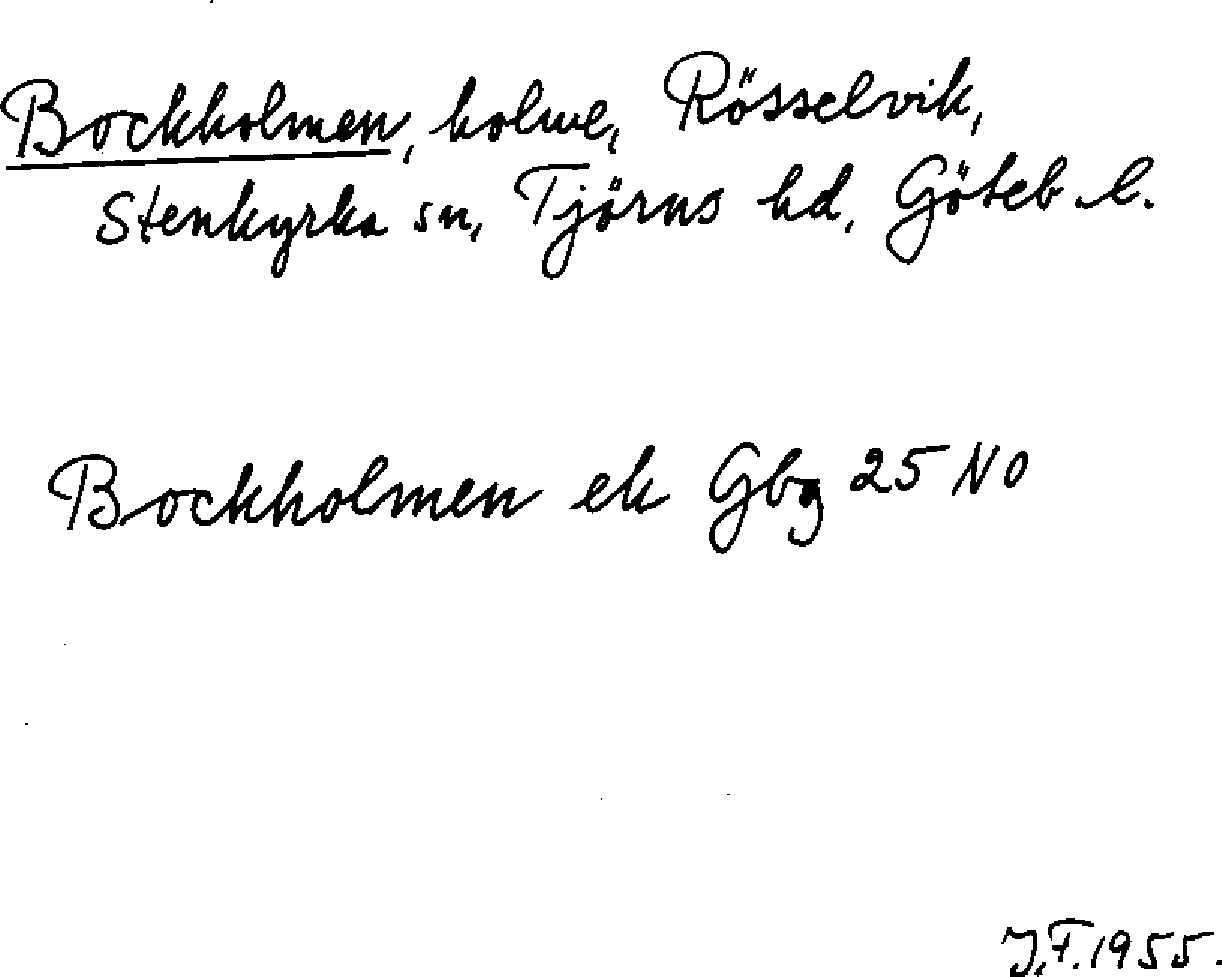 Bockholmen, holme, Rösselvik,
Stenkyrka sn, Tjörns hd, Göteb. l.
Bockholmen ek Gbg 25 NO
J.F. 1955.